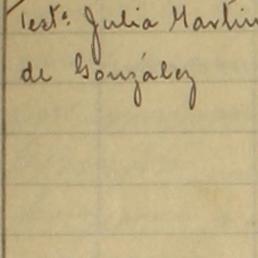 Testº. Julia Martin
de González